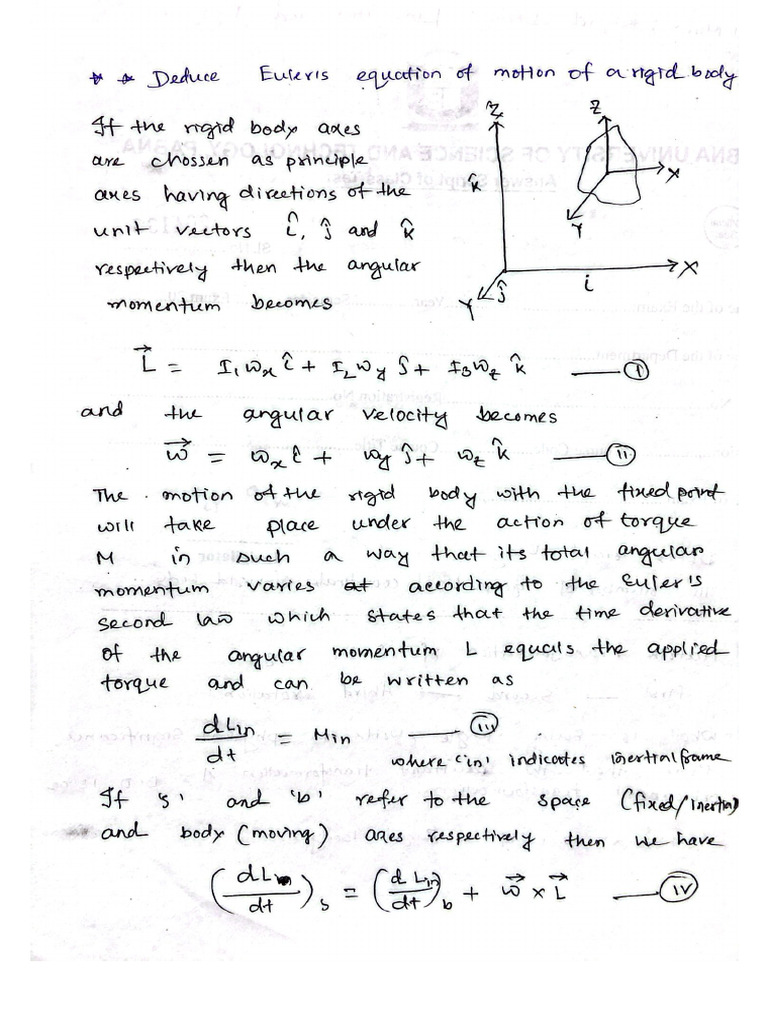 * * Deduce Euler's equation of motion of a rigid body
If the rigid body axes
are chossen as principle
axes having directions of the
unit vectors î, ĵ and k̂
respectively then the angular
momentum becomes
Z
k̂
X
i
Y
ĵ
Z
X
Y
L⃗ = I₁ωₓ î + I₂ωy ĵ + I₃ωz k̂ —— (I)
and the angular velocity becomes
ω⃗ = ωₓ î + ωy ĵ + ωz k̂ —— (II)
The motion of the rigid body with the fixed point
will take place under the action of torque
M in such a way that its total angular
momentum varies at according to the Euler's
second law which states that the time derivative
of the angular momentum L equals the applied
torque and can be written as
dLin/dt = Min —— (III)
where 'in' indicates inertial frame
If 's' and 'b' refer to the space (fixed/inertia)
and body (moving) axes respectively then we have
(dLin/dt)s = (dLin/dt)b + ω⃗ × L⃗ —— (IV)